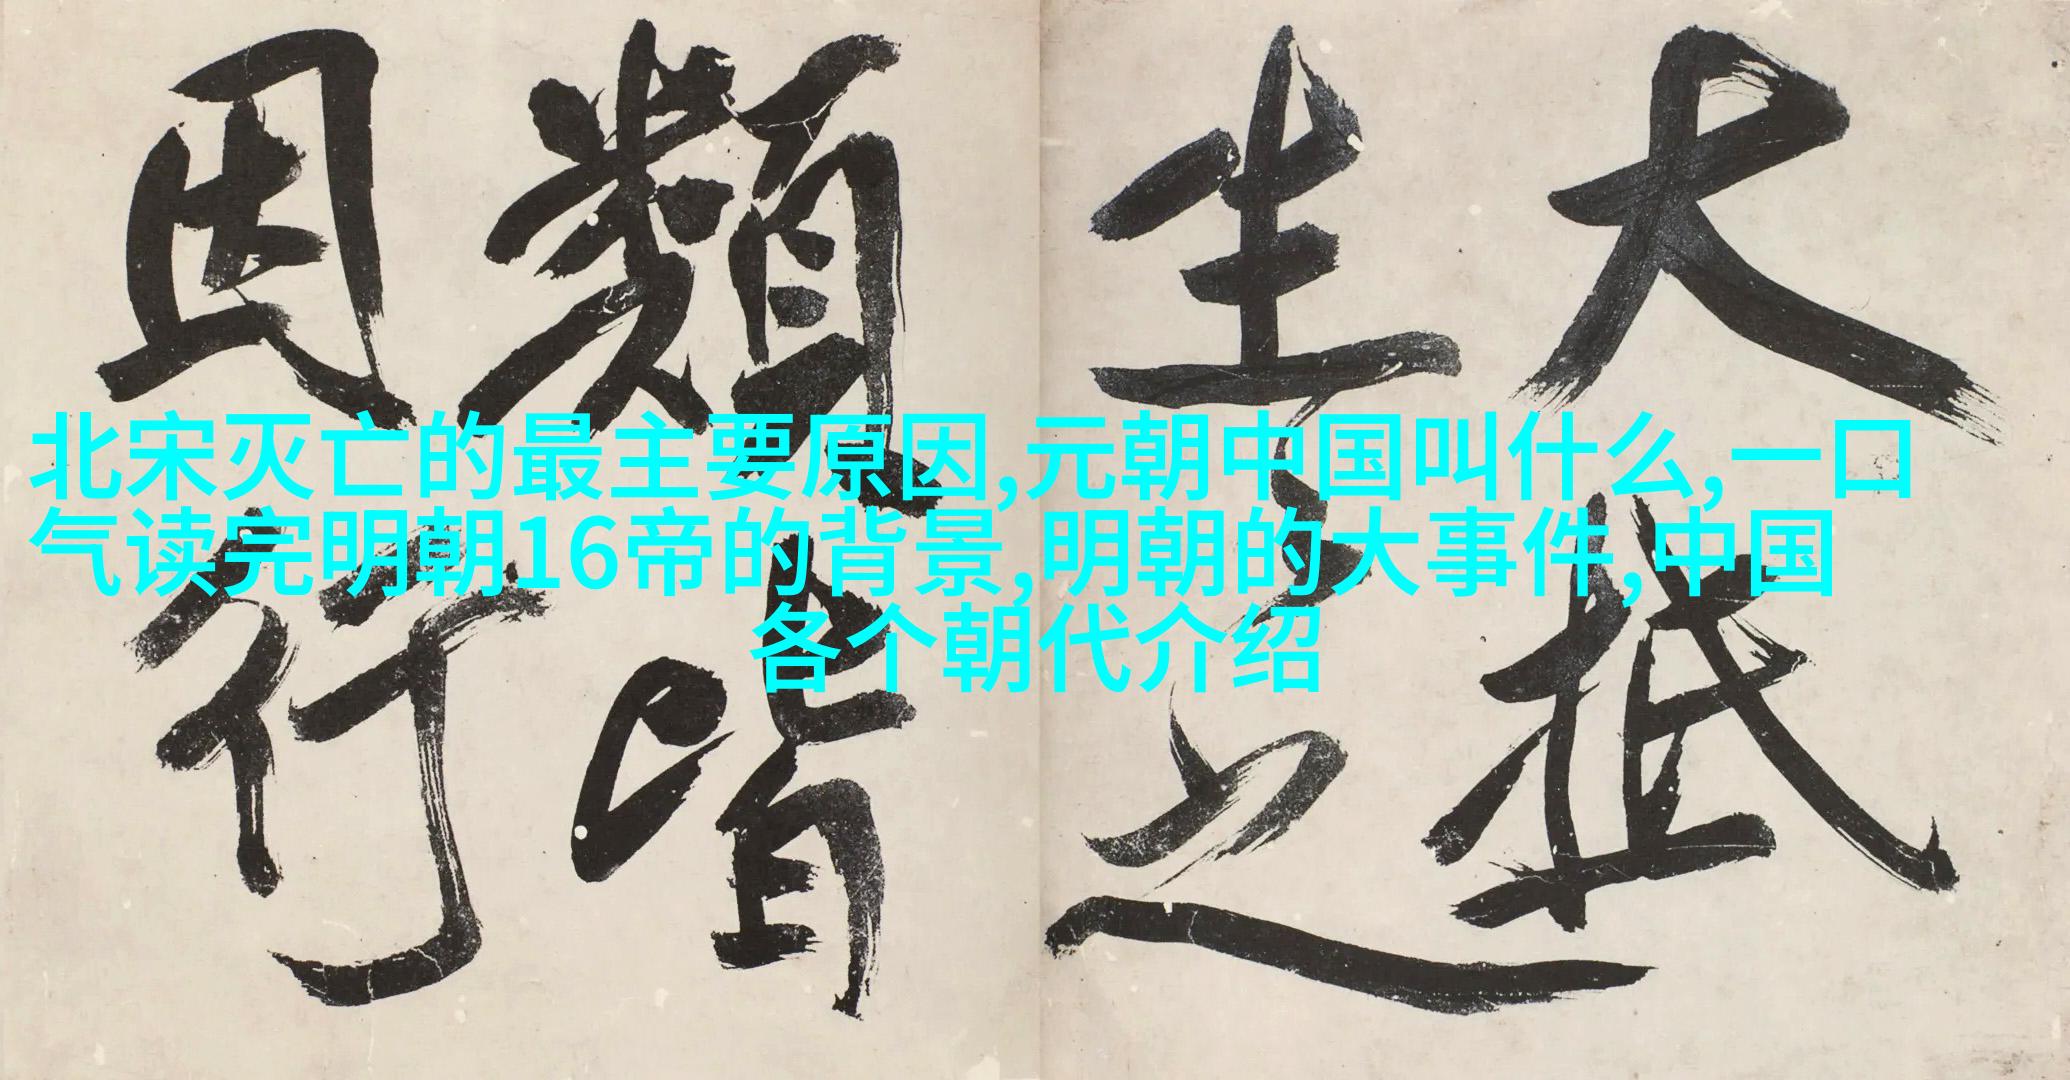 大抵
生之
類皆
因行
北宋灭亡的最主要原因,元朝中国叫什么,一口
气读完明朝16帝的背景,明朝的大事件,中国
各个朝代介绍